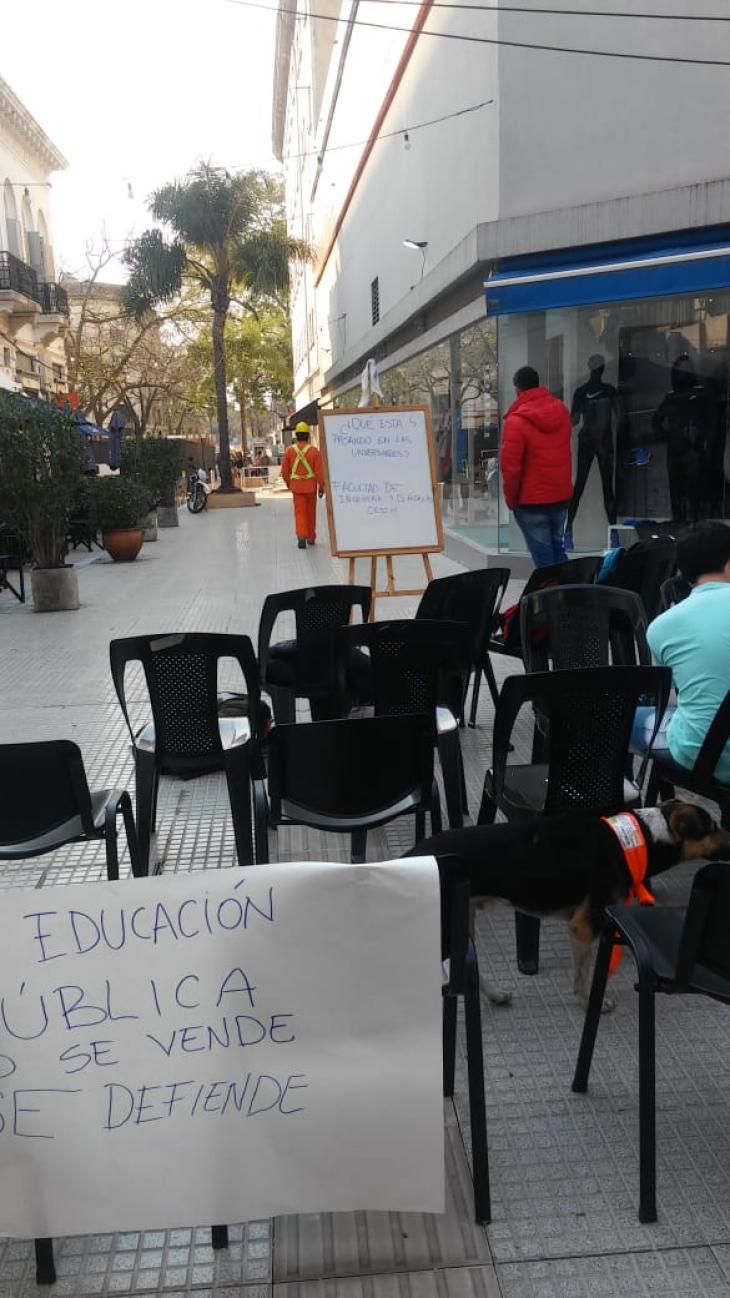 ¿QUE ESTA
PASANDO EN LAS
UNIVERSIDADES?
FACULTAD DE
INGENIERIA Y CS HIDRICAS
EDUCACIÓN
PÚBLICA
SE VENDE
SE DEFIENDE